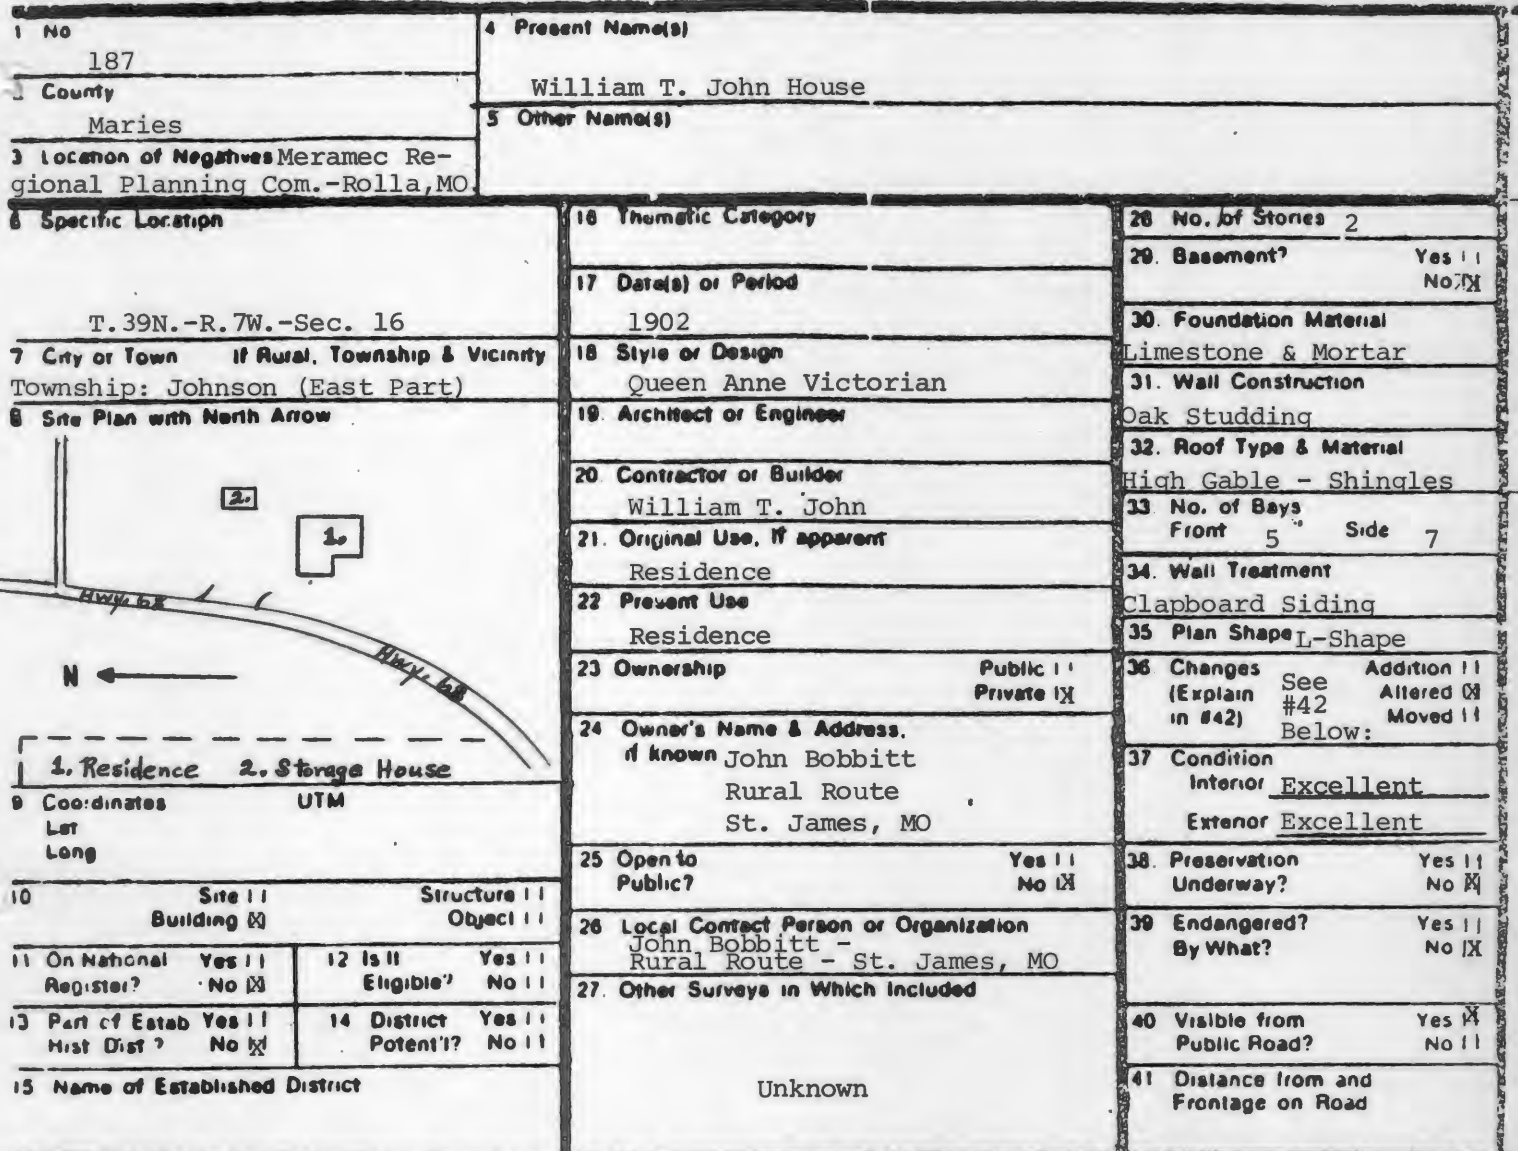 1 No
187
County
Maries
3 Location of Negatives Meramec Re-
gional Planning Com.-Rolla,MO.
4 Present Name(s)
William T. John House
5 Other Name(s)
6 Specific Location
T.39N.-R.7W.-Sec. 16
7 City or Town If Rural, Township & Vicinity
Township: Johnson (East Part)
8 Site Plan with North Arrow
2.
1.
Hwy. 68
Hwy. 68
N
1. Residence 2. Storage House
9 Coordinates UTM
Lat
Long
10 Site | | Structure | |
Building |X| Object | |
11 On National Yes | |
Register? No |X|
12 Is It Yes | |
Eligible? No | |
13 Part of Estab Yes | |
Hist Dist ? No |X|
14 District Yes | |
Potent'l? No | |
15 Name of Established District
16 Thematic Category
17 Date(s) or Period
1902
18 Style or Design
Queen Anne Victorian
19. Architect or Engineer
20 Contractor or Builder
William T. John
21. Original Use, if apparent
Residence
22 Present Use
Residence
23 Ownership Public | |
Private |X|
24 Owner's Name & Address,
if known John Bobbitt
Rural Route
St. James, MO
25 Open to Yes | |
Public? No |X|
26 Local Contact Person or Organization
John Bobbitt -
Rural Route - St. James, MO
27. Other Surveys in Which Included
Unknown
28 No. of Stories 2
29. Basement? Yes | |
No |X|
30. Foundation Material
Limestone & Mortar
31. Wall Construction
Oak Studding
32. Roof Type & Material
High Gable - Shingles
33 No. of Bays
Front 5 Side 7
34. Wall Treatment
Clapboard Siding
35 Plan Shape L-Shape
36 Changes See Addition | |
(Explain #42 Altered |X|
in #42) Below: Moved | |
37 Condition
Interior Excellent
Exterior Excellent
38. Preservation Yes | |
Underway? No |X|
39 Endangered? Yes | |
By What? No |X|
40 Visible from Yes |X|
Public Road? No | |
41 Distance from and
Frontage on Road